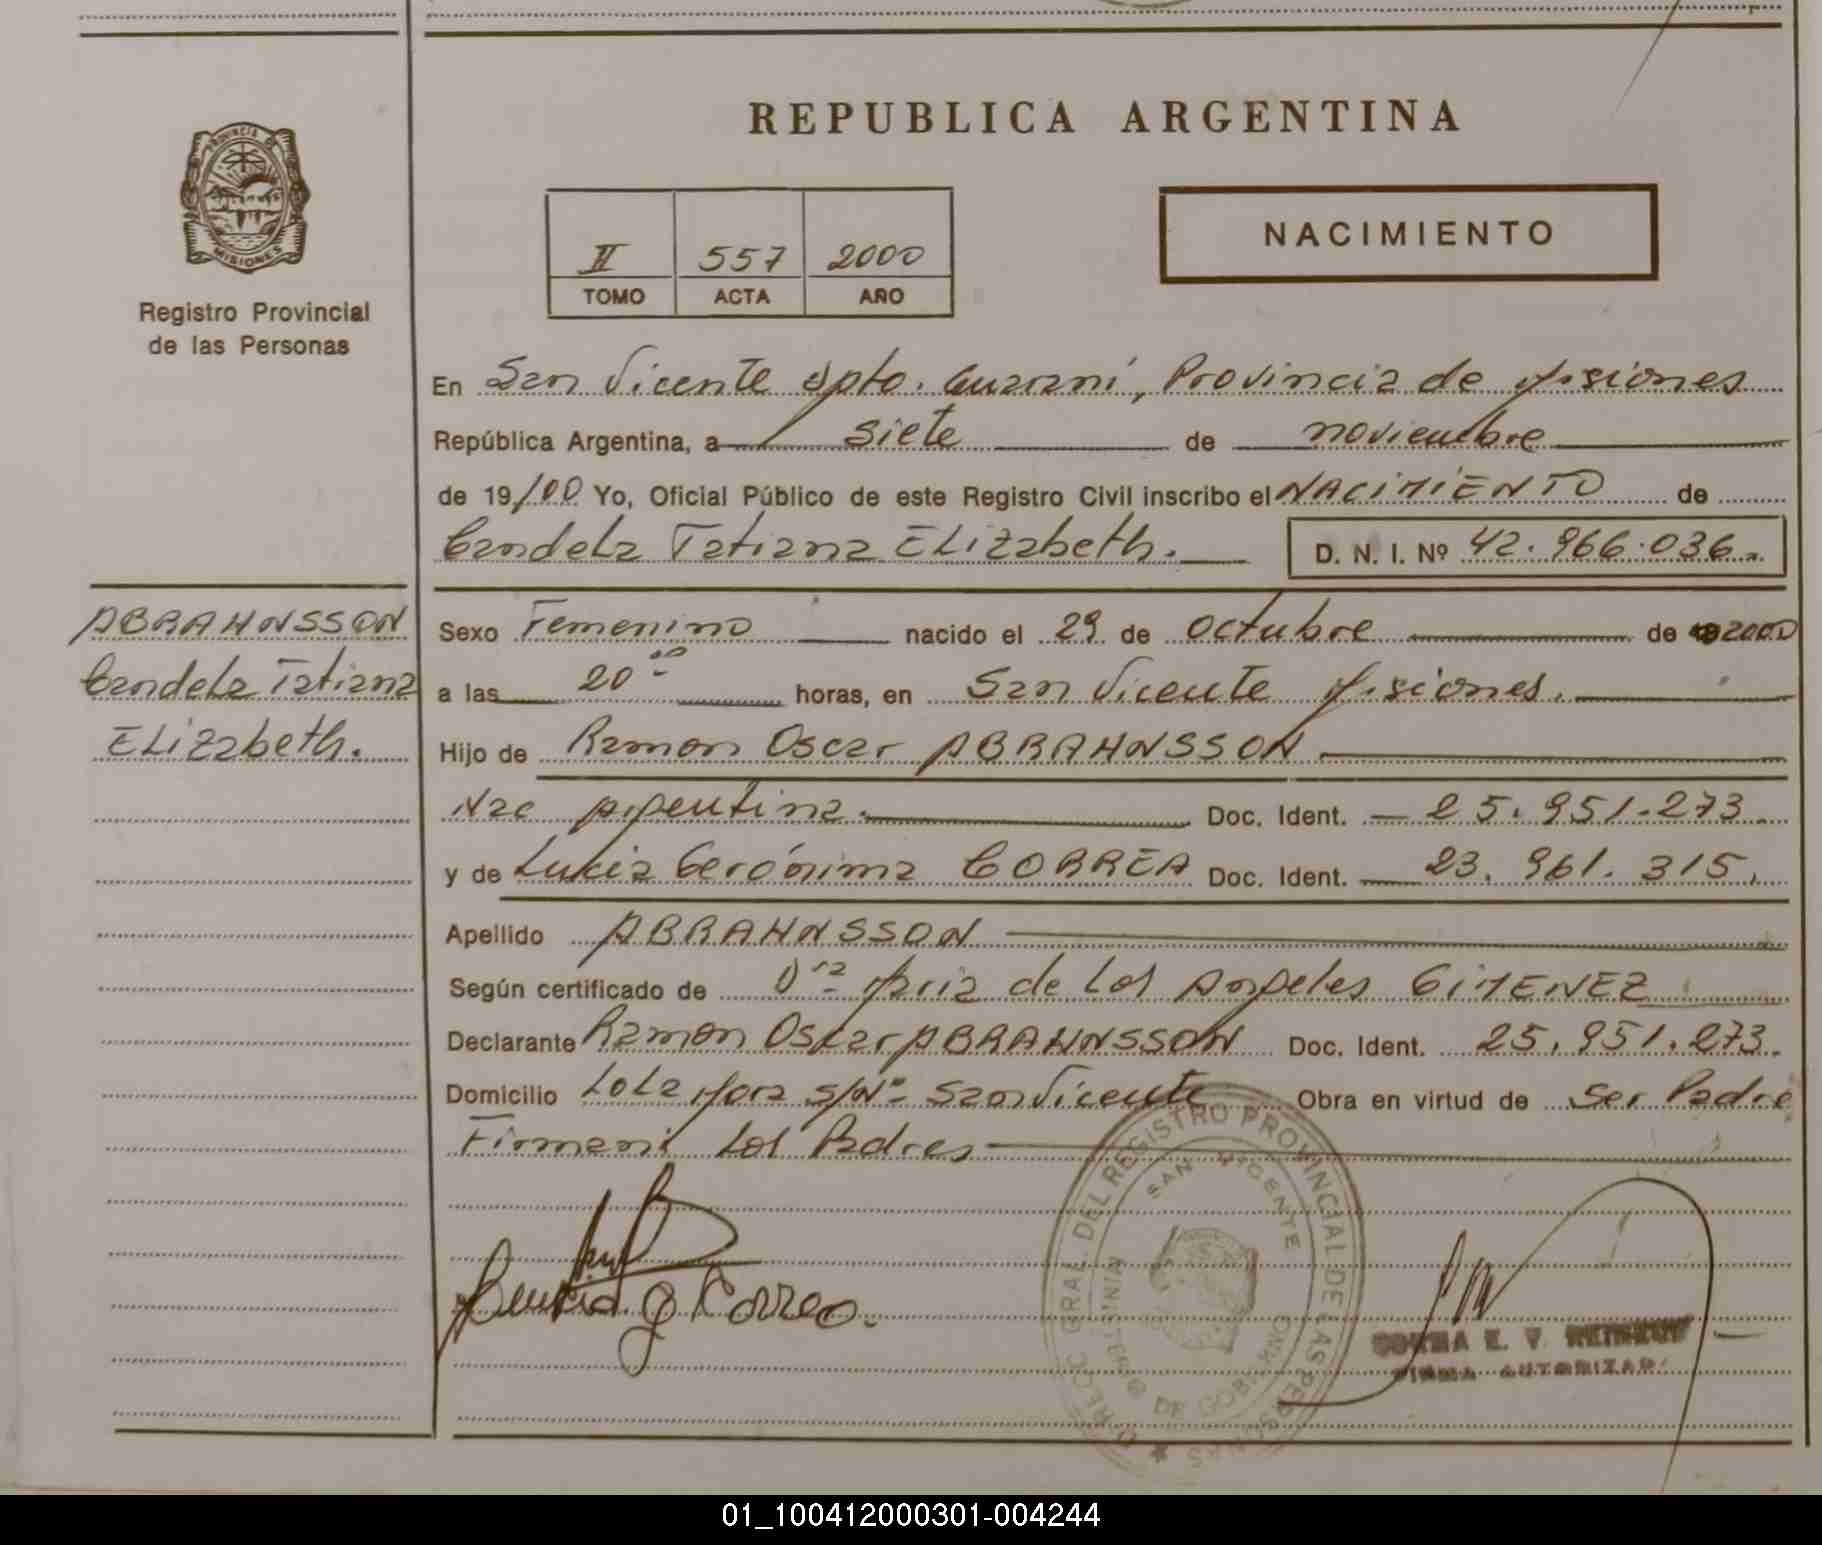 REPUBLICA ARGENTINA
PROVINCIA DE
MISIONES
Registro Provincial
de las Personas
II 557 2000
TOMO ACTA AÑO
NACIMIENTO
En San Vicente Dpto. Guaraní, Provincia de Misiones
República Argentina, a siete de noviembre
de 19/00 Yo, Oficial Público de este Registro Civil inscribo el NACIMIENTO de
Candela Tatiana ELizabeth. D. N. I. Nº 42.966.036
ABRAHNSSON
Candela Tatiana
ELizabeth.
Sexo Femenino nacido el 29 de octubre de 2000
a las 20 00 horas, en San Vicente Misiones.
Hijo de Ramon Oscar ABRAHNSSON
Nac Argentina. Doc. Ident. 25.951.273
y de Lukia Gerónima CORREA Doc. Ident. 23.961.315.
Apellido ABRAHNSSON
Según certificado de Dra María de Los Angeles GIMENEZ
Declarante Ramon Oscar ABRAHNSSON Doc. Ident. 25.951.273.
Domicilio LoLa Mora s/Nº San Vicente Obra en virtud de Ser Padre
Firman Los Padres
G Correa.
DIRECC GRAL. DEL REGISTRO PROVINCIAL DE LAS PERSONAS
SAN VICENTE
MINISTERIO DE GOBIERNO
E. V.
FIRMA AUTORIZADA
01_100412000301-004244